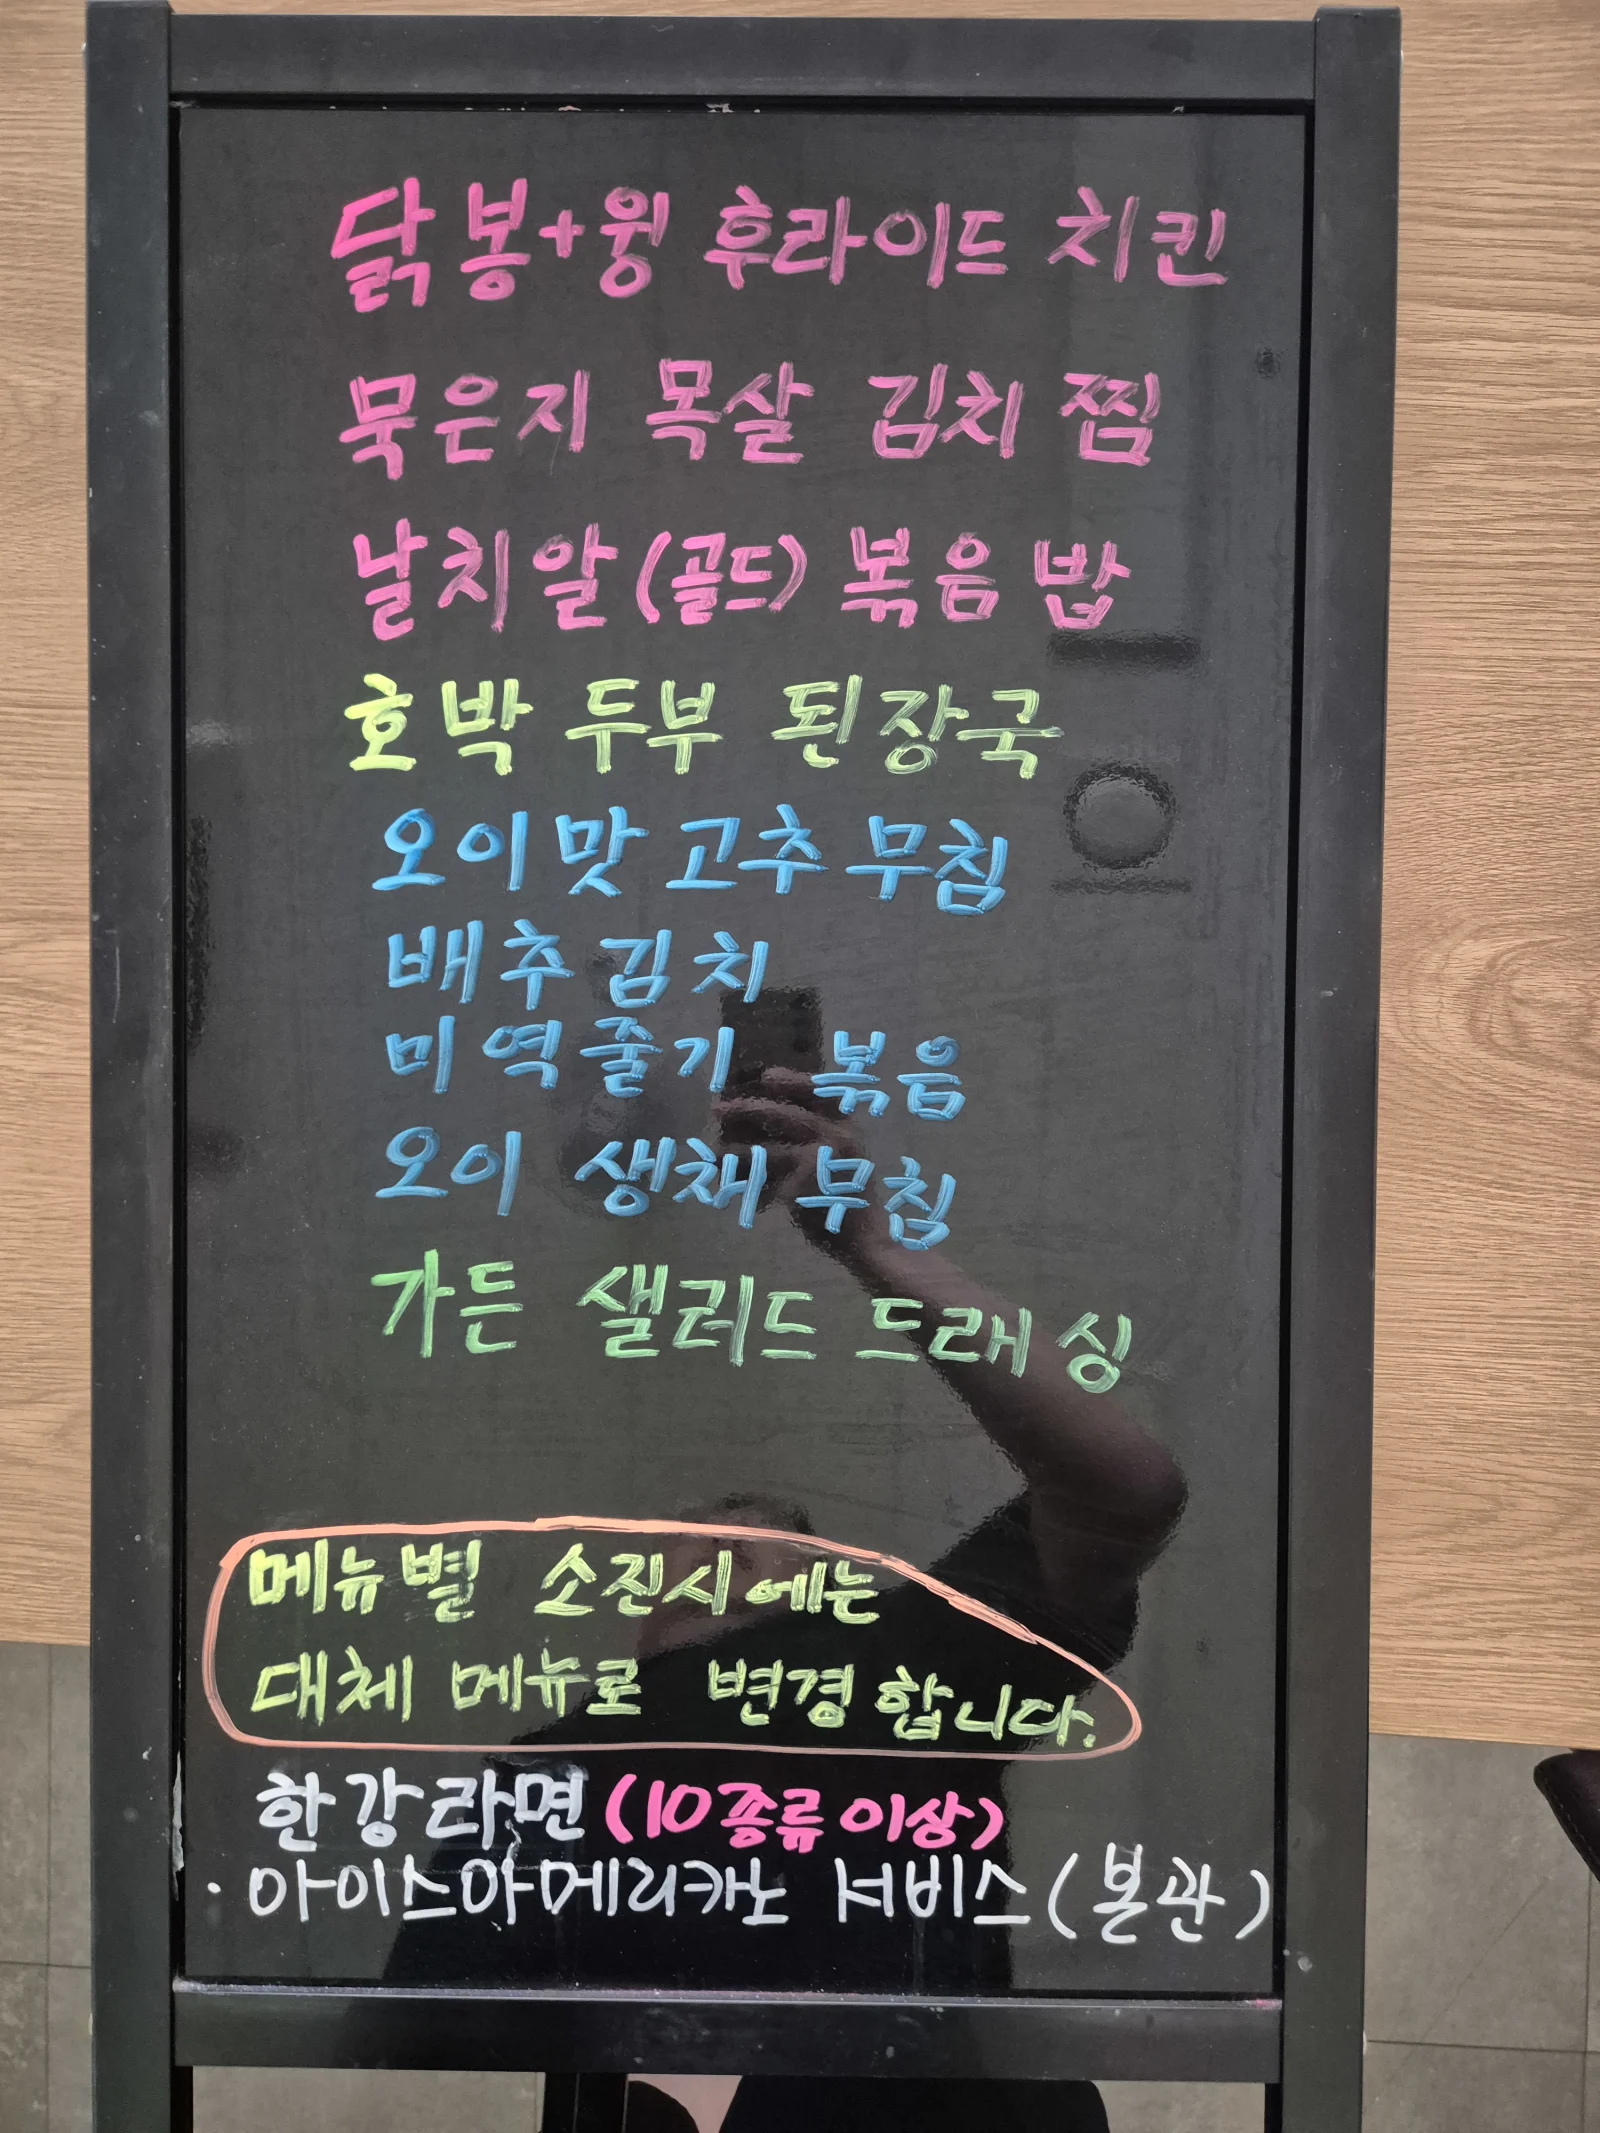 닭봉+윙 후라이드 치킨
묵은지 목살 김치찜
날치알(골드) 볶음밥
호박 두부 된장국
오이맛고추무침
배추김치
미역줄기 볶음
오이 생채 무침
가든 샐러드 드래싱
메뉴별 소진시에는
대체 메뉴로 변경합니다.
한강라면(10종류이상)
·아이스아메리카노 서비스(본관)